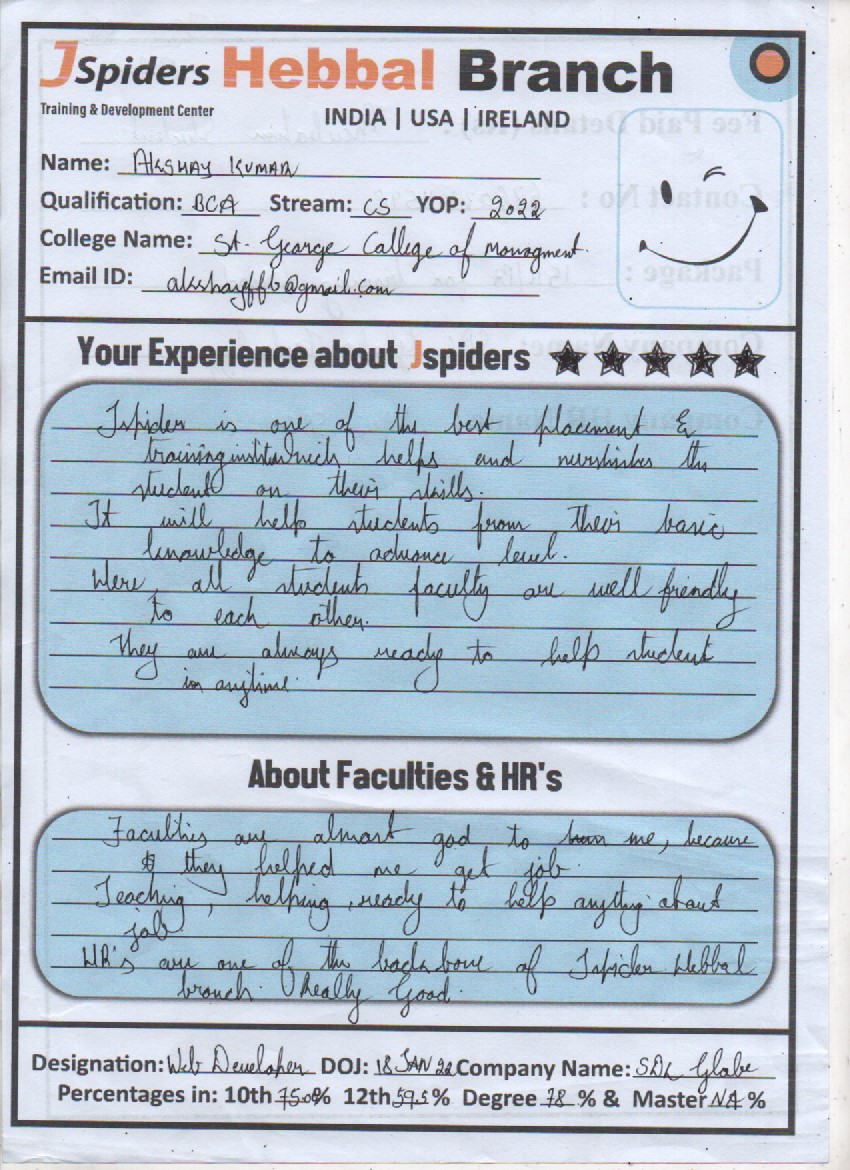 JSpiders Hebbal Branch
Training & Development Center
INDIA | USA | IRELAND
Name: AKSHAY KUMAR
Qualification: BCA Stream: CS YOP: 2022
College Name: St. George College of Managment.
Email ID: akshayffb@gmail.com
Your Experience about Jspiders
Jspider is one of the best placement &
training institute which helps and the
student on their skills.
It will help students from their basic
knowledge to advance level.
Here, all students faculty are well friendly
to each other.
They are always ready to help student
in anytime.
About Faculties & HR's
Faculties are almost god to me, because
they helped me get job.
Teaching, helping, ready to help anything about
job
HR's are one of the back bone of Jspider Hebbal
branch. Really Good.
Designation: Web Developer DOJ: 18 JAN 22 Company Name: SDL Globe
Percentages in: 10th 75.0% 12th 59.5% Degree 78 % & Master NA %